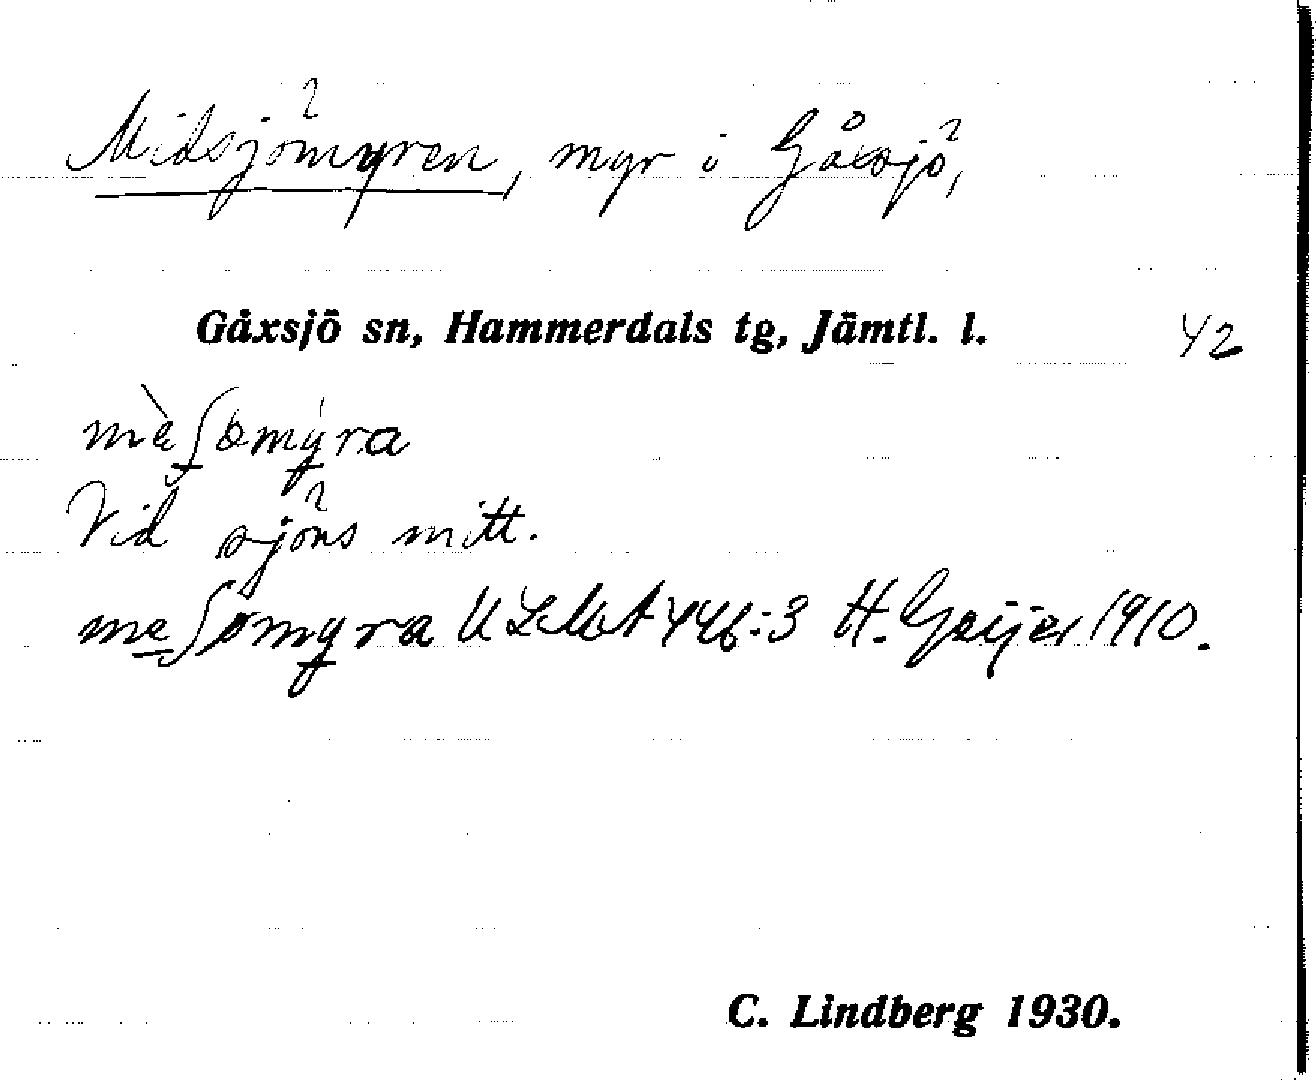 Midsjömyren, myr i Gåxsjö,
Gåxsjö sn, Hammerdals tg, Jämtl. l.
42
mèʃömýra
Vid sjöns mitt.
meʃömyra ULMA 446:3 H. Geijer 1910.
C. Lindberg 1930.